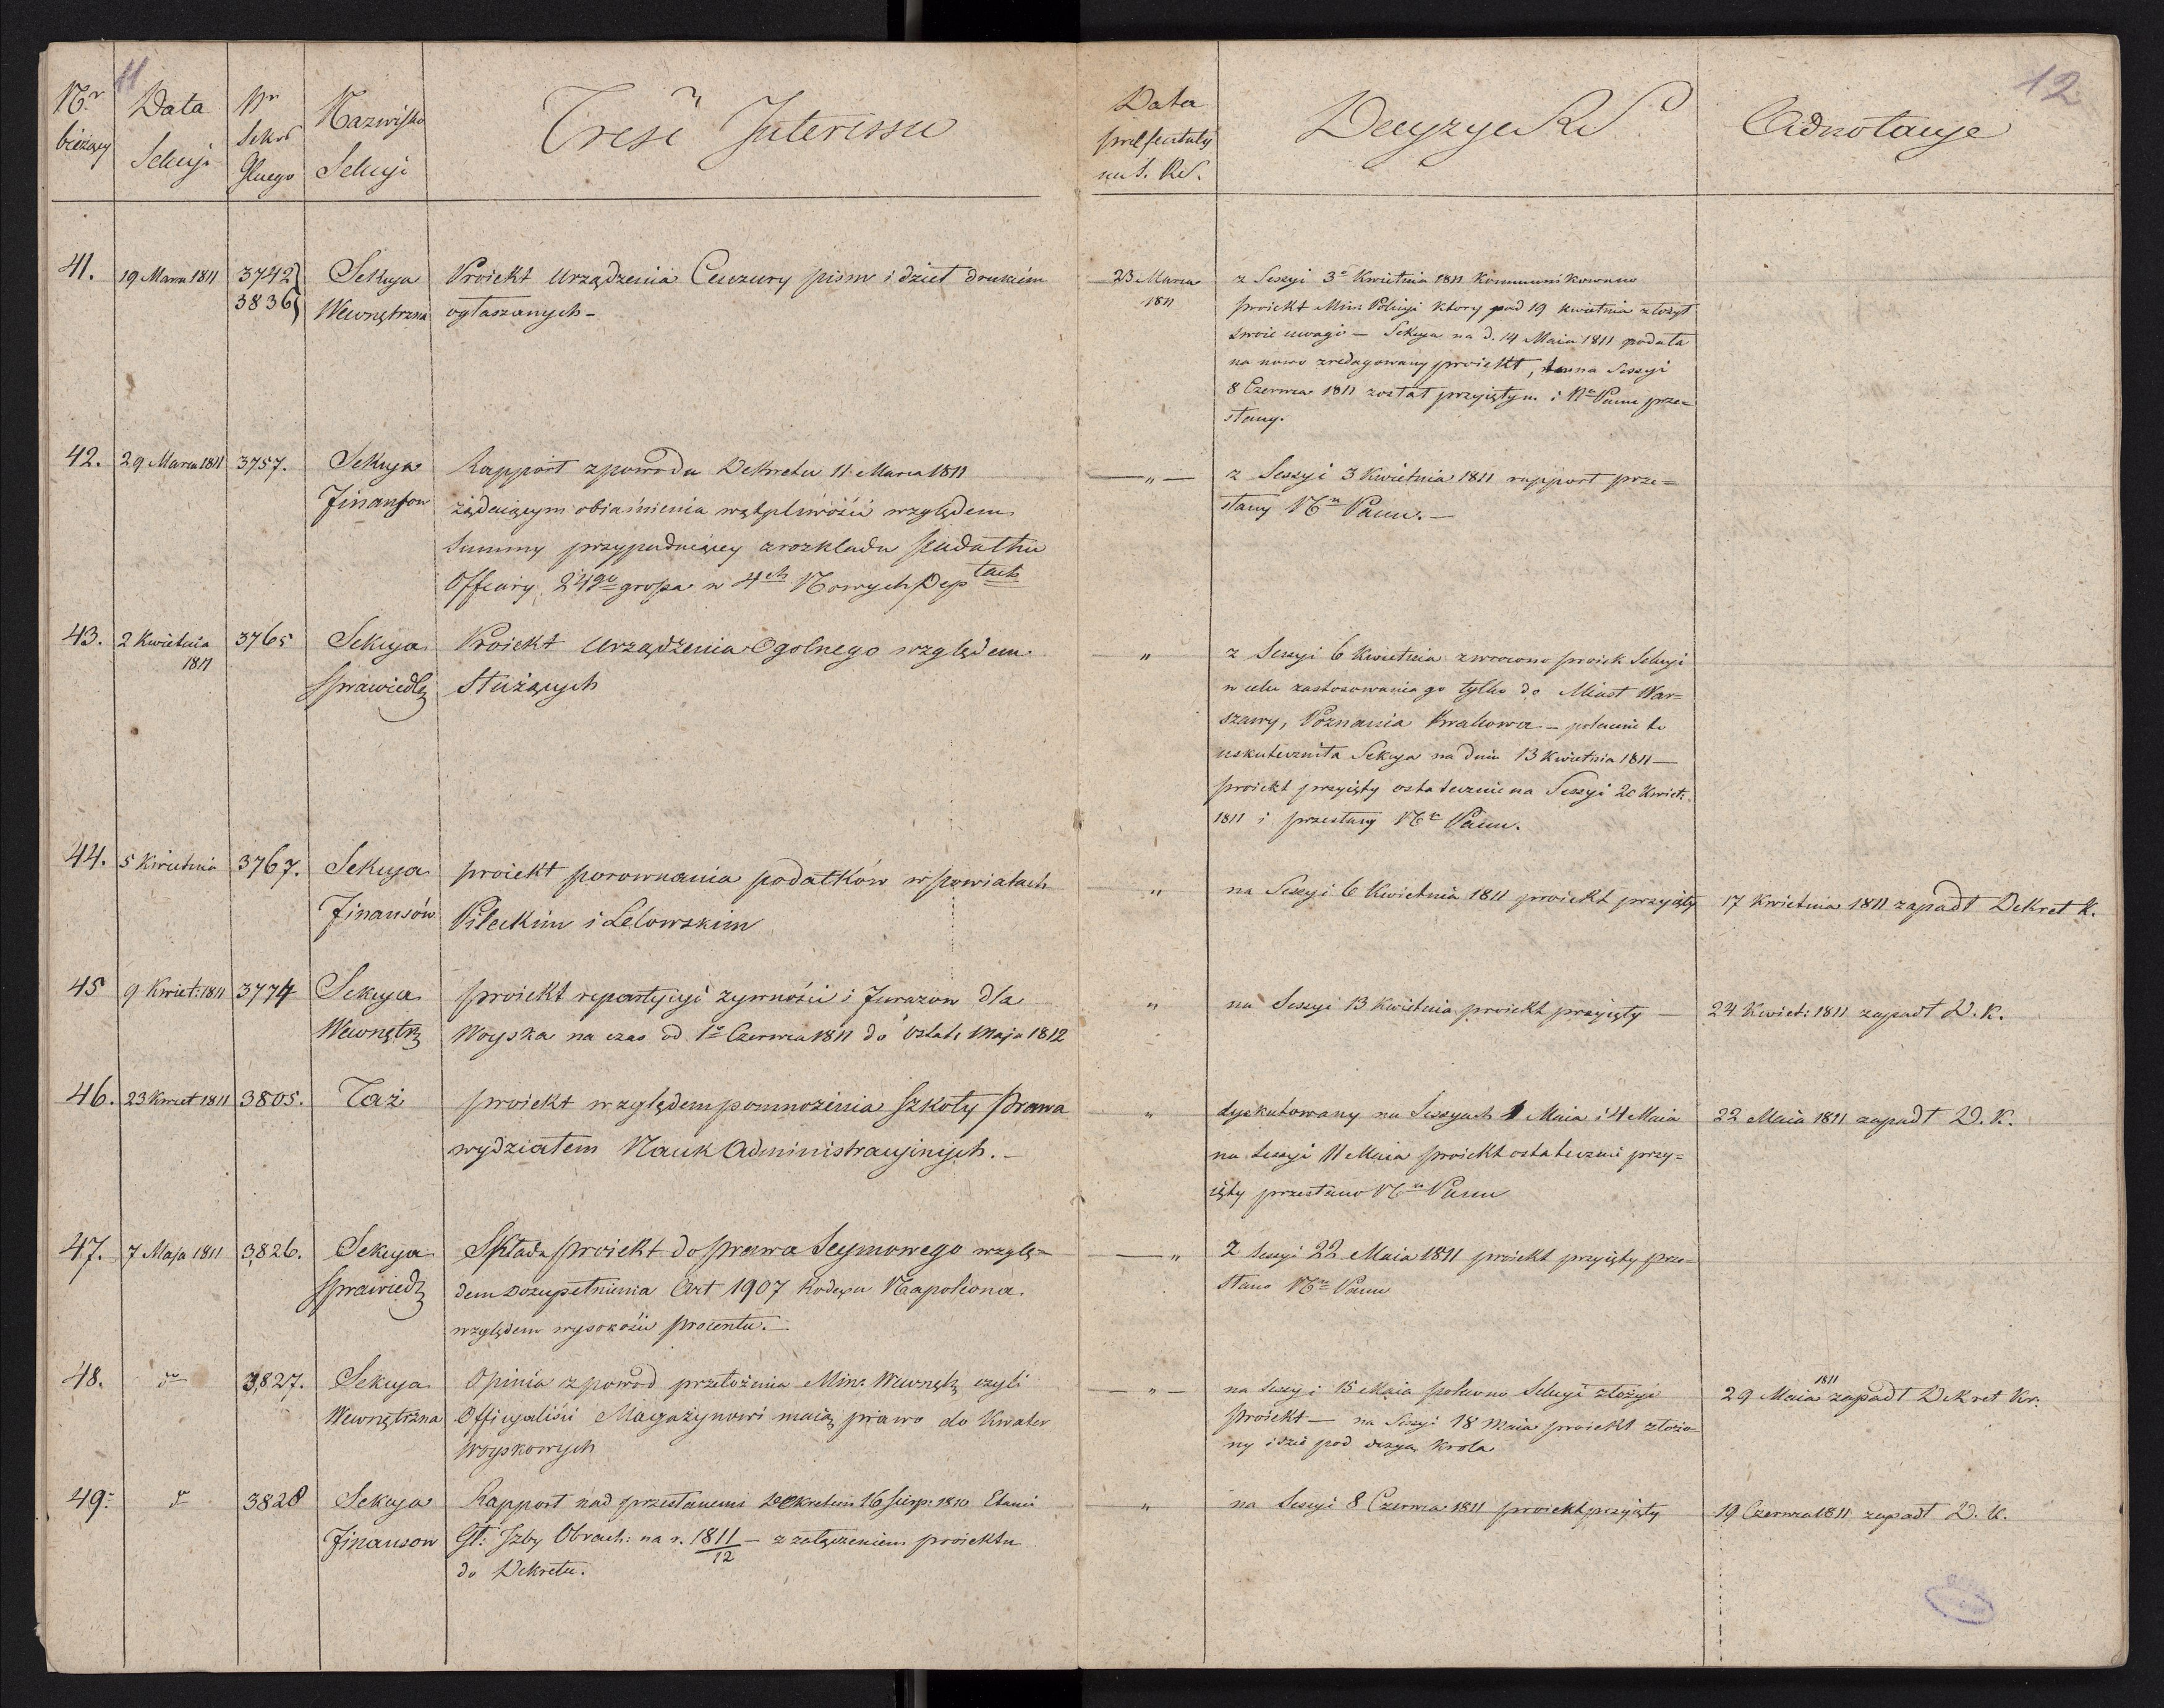 11
12
Nr bieżący
Data Sekcyi
Nr Sekr Głnego
Nazwisko Sekcyi
Treść Interessu
Data praesentaty na S. R.S.
Decyzye R S.
Adnotacye
41.
19 Marca 1811
3742
3836
Sekcya
Wewnętrzna
Proiekt Urządzenia Cenzury pism i dzieł drukiem
ogłaszanych -
23 Marca
1811
z Sessyi 3o Kwietnia 1811 kommunikowano
proiekt Min: Policyi ktory pod 19 kwietnia złożył
swoie uwagi — Sekcya na d. 14 Maia 1811 podała
na nowo zredagowany proiekt, na Sessyi
8 Czerwca 1811 został przyiętym i Nu Panu prze=
słany.
42.
29 Marca 1811
3757.
Sekcya
Finansow
Rapport zpowodu Dekretu 11 Marca 1811
żądaiącym obiaśnienia wątpliwości względem
Summy przypadaiącey zrozkładu podatku
Offiary, 24go grosza w 4ch Nowych Deptach
— " —
z Sessyi 3 Kwietnia 1811 rapport prze=
słany Nu Panu. —
43.
2 Kwietnia
1811
3765
Sekcya
Sprawiedl
Proiekt Urządzenia Ogolnego względem
Służących
"
z Sessyi 6 Kwietnia zwrocono proiek Sekcyi
w celu zastosowania go tylko do Miast War=
szawy, Poznania Krakowa — polecenie to
uskuteczniła Sekcya na dniu 13 Kwietnia 1811 —
proiekt przyięty ostatecznie na Sessyi 20 Kwiet:
1811 i przesłany Nu Panu.
44.
5 Kwietnia
3767.
Sekcya
Finansów
proiekt porownania podatków w powiatach
Pileckim i Lelowskim
"
na Sessyi 6 Kwietnia 1811 proiekt przyięty
17 Kwietnia 1811 zapadł Dekret K.
45
9 Kwiet: 1811
3774
Sekcya
Wewnętrz
proiekt repartycyi żywności i furazow dla
Woyska na czas od 1o Czerwca 1811 do ostat: Maja 1812
"
na Sessyi 13 Kwietnia proiekt przyięty —
24 Kwiet: 1811 zapadł D. K.
46.
23 Kwiet 1811
3805.
Taż
proiekt względem pomnożenia Szkoły Prawa
wydziałem Nauk Administracyinych. —
"
dyskutowany na Sessyach 1 Maia i 4 Maia
na Sessyi 11 Maia proiekt ostatecznie przy=
ięty przesłano Nu Panu
22 Maia 1811 zapadł D. K.
47.
7 Maja 1811
3,826.
Sekcya
Sprawiedl
Składa proiekt do prawa Seymowego wzglę=
dem dozupełnienia Art 1907 Kodexu Napoleona
względem wysokości procentu. —
— "
Z Sessyi 22 Maia 1811 proiekt przyięty prze=
słano Nu Panu
48.
do
3,827.
Sekcya
Wewnętrzna
Opinia zpowod przełożenia Min: Wewnętrz czyli
Officyaliści Magazynowi maią prawo do Kwater
Woyskowych
— " —
na Sessyi 15 Maia polecono Sekcyi złożyć
proiekt — na Sessyi 18 Maia proiekt złożo=
ny idzie pod decyzyą Krola
29 Maia 1811 zapadł Dekret Kr.
49.
do
3828
Sekcya
Finansow
Rapport nad przesłanemi Dekretem 16 Sierp: 1810 Etami
Gł: Izby Obrach: na r. 1811/12 — z załączeniem proiektu
do Dekretu.
"
na Sessyi 8 Czerwca 1811 proiekt przyięty
19 Czerwca 1811 zapadł D. K.